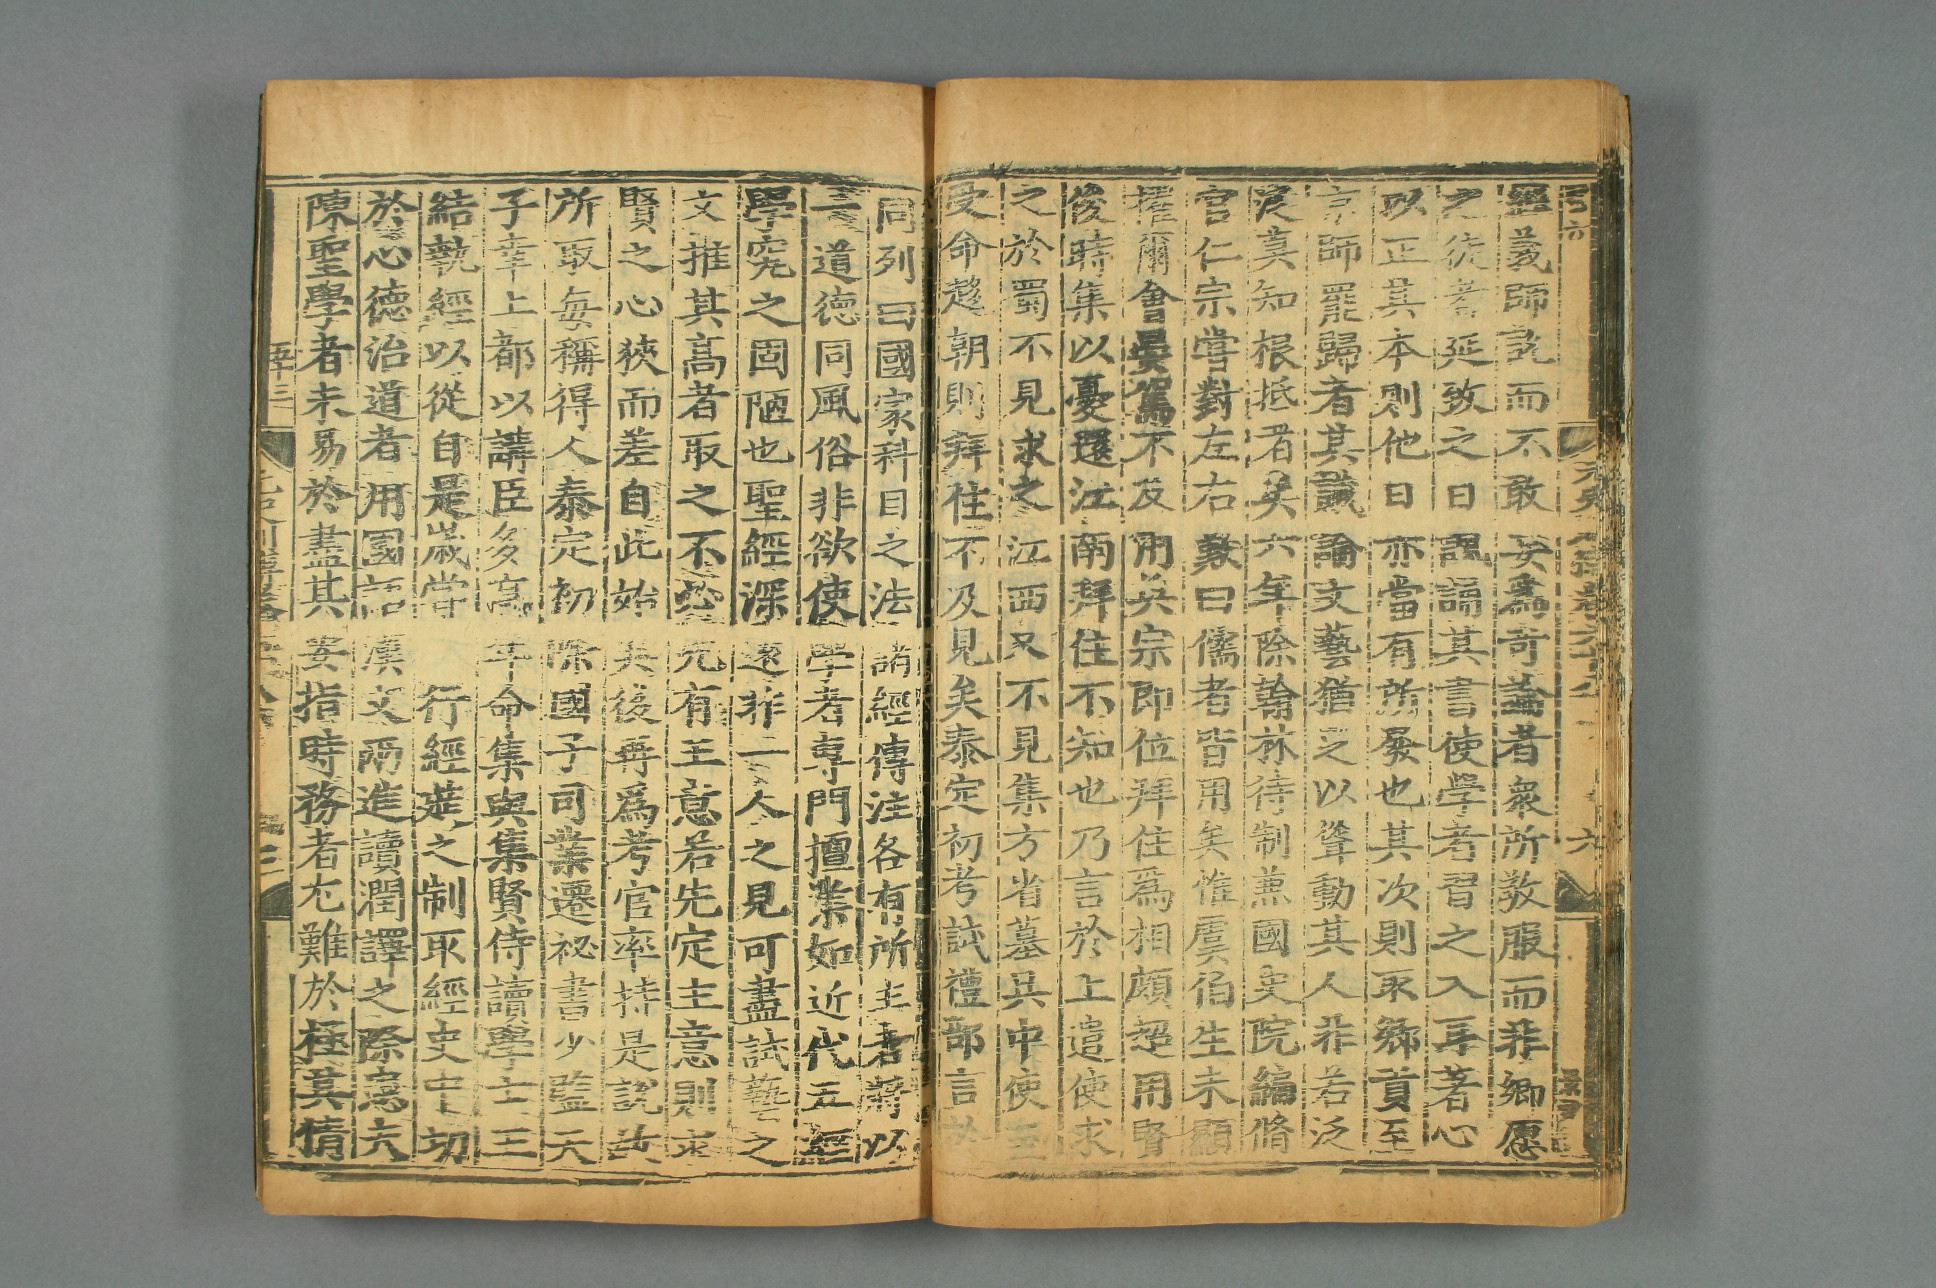 經義師說而不敢妄爲奇論者衆所敎服而非鄕愿
之徒者延致之日諷誦其書使學者習之入耳著心
以正其本則他日亦當有所發也其次則取鄕貢至
京師罷歸者其議論文藝猶足以聳動其人非若泛
泛莫知根柢者矣六年除翰林待制兼國史院編脩
官仁宗嘗對左右歎曰儒者皆用矣惟虞伯生未顯
擢爾會晏駕不及用英宗即位拜住爲相頗超用賢
俊時集以憂還江南拜住不知也乃言於上遣使求
之於蜀不見求之江西又不見集方省墓吳中使至
受命趍朝則拜住不及見矣泰定初考試禮部言於
同列曰國家科目之法諸經傳注各有所主者將以
一道德同風俗非欲使學者専門擅業如近代五經
學究之固陋也聖經深遠非一人之見可盡試藝之
文推其高者取之不必先有主意若先定主意則求
賢之心狹而差自此始矣後再爲考官率持是說故
所取每稱得人泰定初除國子司業遷祕書少監天
子幸上都以講臣多高年命集與集賢侍讀學士王
結執經以從自是歲嘗行經筵之制取經史中切
於心德治道者用國語漢文兩進讀潤譯之際患夫
陳聖學者未易於盡其要指時務者尤難於極其情